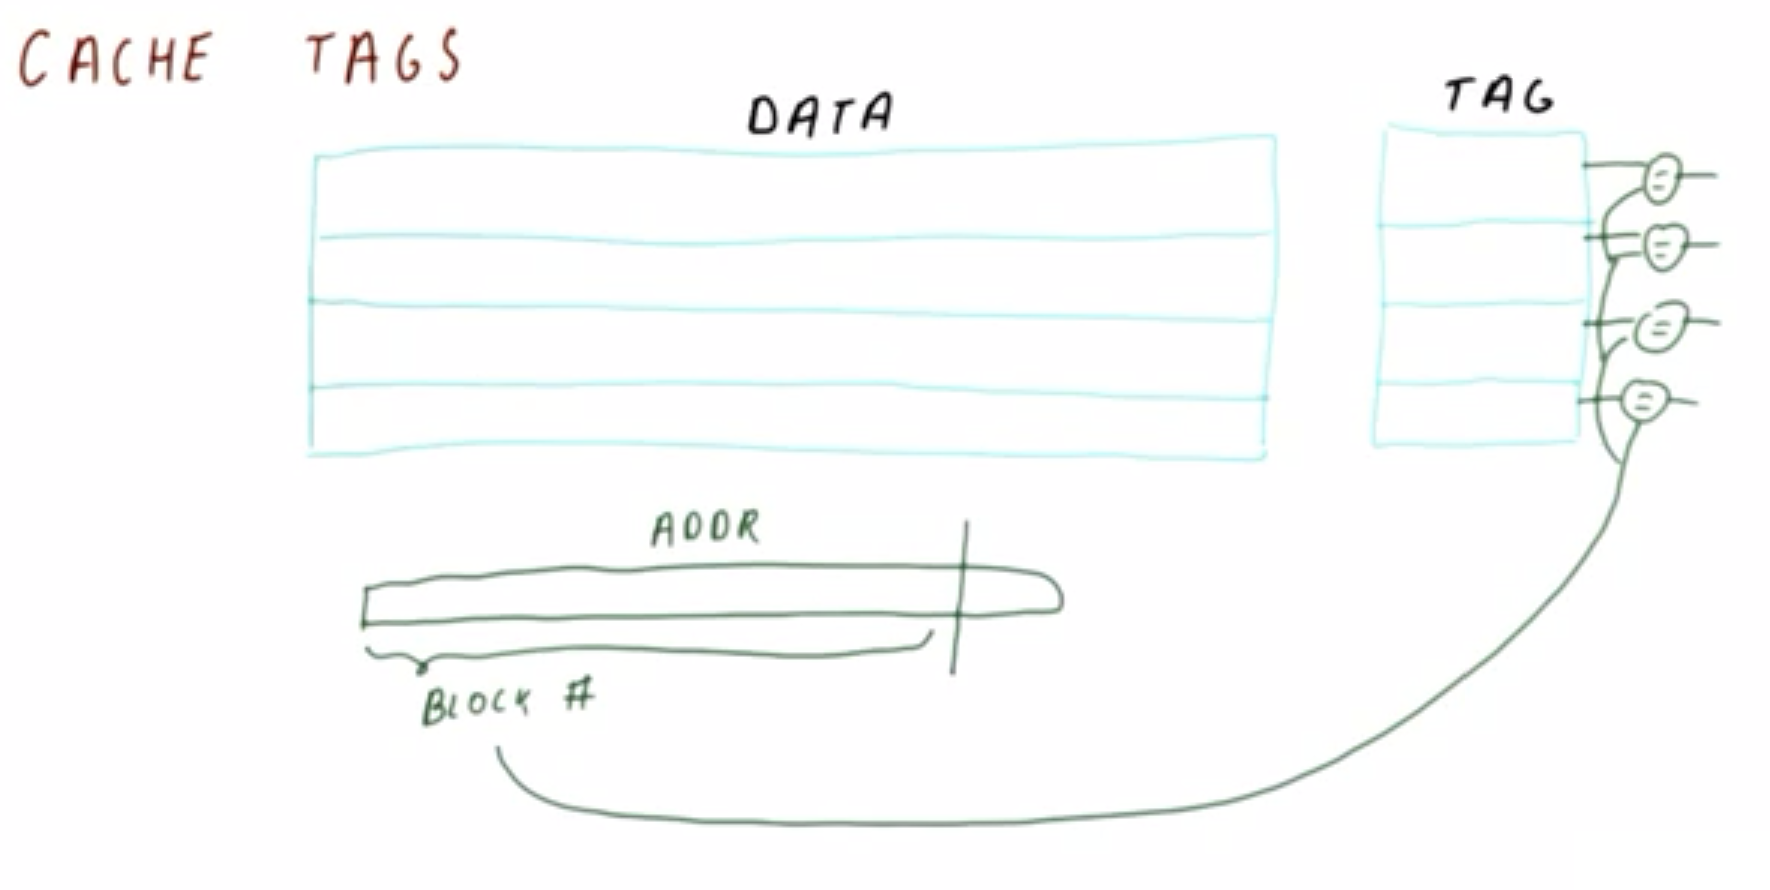 CACHE TAGS
DATA
TAG
=
=
=
=
ADDR
BLOCK #